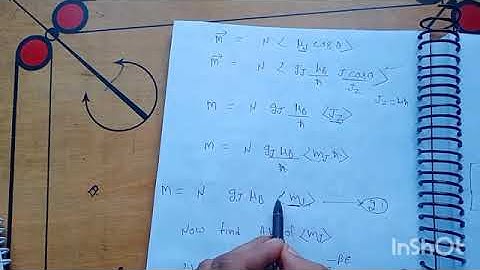 m⃗ = N < μJ cosθ >
m⃗ = N < gJ μB/ħ J cosθ >
Jz
Jz = mJħ
m = N gJ μB/ħ <Jz>
m = N gJ μB/ħ <mJ ħ>
M = N gJ μB <mJ> → (1)
Now find of <mJ>
-βE
InShOt